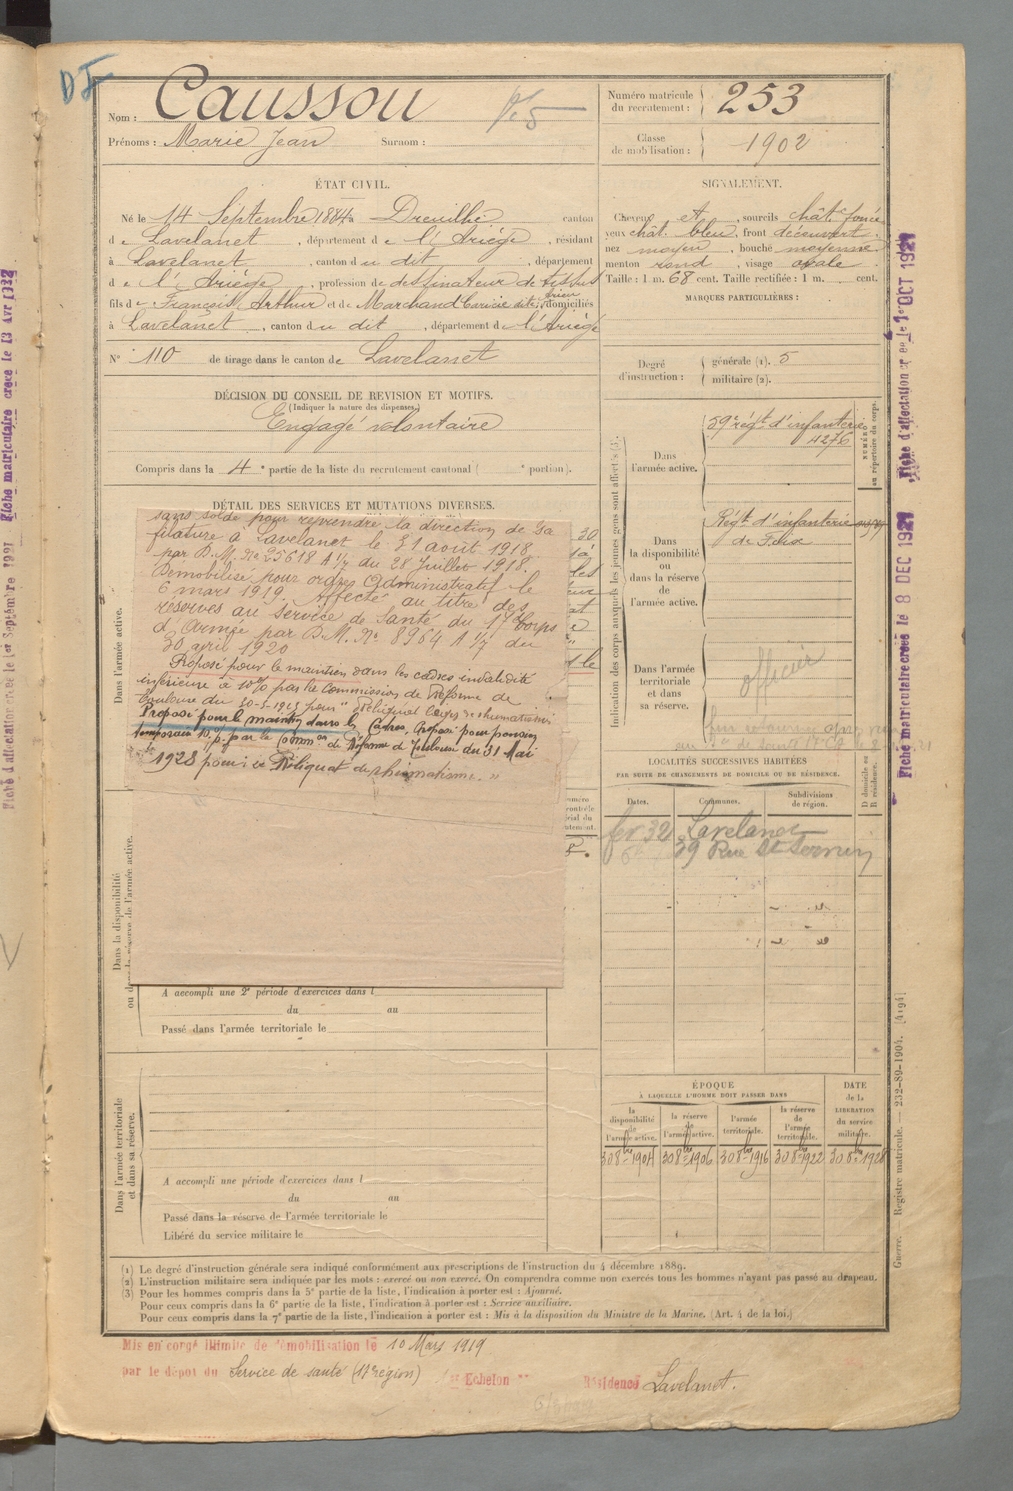 DJ
Nom : Caussou
Prénoms : Marie Jean Surnom :
Numéro matricule du recrutement : 253
Classe de mobilisation : 1902
ÉTAT CIVIL.
Né le 14 Septembre 1884 à Dreuilhe canton
de Lavelanet, département de l'Ariège, résidant
à Lavelanet, canton du dit, département
de l'Ariège, profession de dessinateur de tissus
fils de François Arthur et de Marchand domiciliés
à Lavelanet, canton du dit, département de l'Ariège
N° 110 de tirage dans le canton de Lavelanet
SIGNALEMENT.
Cheveux et, sourcils chât. foncé
yeux chât. bleu, front découvert,
nez moyen, bouche moyenne
menton rond, visage ovale
Taille : 1 m. 68 cent. Taille rectifiée : 1 m. cent.
MARQUES PARTICULIÈRES :
Degré d'instruction : générale (1). 5
militaire (2).
DÉCISION DU CONSEIL DE REVISION ET MOTIFS.
(Indiquer la nature des dispenses.)
Engagé volontaire
Compris dans la 4e partie de la liste du recrutement cantonal ( e portion).
DÉTAIL DES SERVICES ET MUTATIONS DIVERSES.
sans solde pour reprendre la direction de sa
filature à Lavelanet le 31 août 1918
par D.M. No 25618 A 1/7 du 28 Juillet 1918.
Démobilisé pour ordre Administratif le
6 mars 1919. Affecté au titre des
réserves au Service de Santé du 17e Corps
d'Armée par D.M. No 8964 A 1/7 du
30 avril 1920
Proposé pour le maintien dans les cadres invalidité
inférieure à 10% par la Commission de Réforme de
Toulouse du 30-5-1923 pour "reliquat léger de rhumatisme
Proposé pour le maintien dans les Cadres, Proposé pour pension
temporaire 10% par la Common de Réforme de Toulouse du 31 Mai
1928 pour : "Reliquat de rhumatisme."
Dans l'armée active.
Dans la disponibilité
ou dans la réserve de l'armée active.
A accompli une 2e période d'exercices dans l
du au
Passé dans l'armée territoriale le
Dans l'armée territoriale
et dans sa réserve.
A accompli une période d'exercices dans l
du au
Passé dans la réserve de l'armée territoriale le
Libéré du service militaire le
Indication des corps auxquels les jeunes gens sont affectés (3).
NUMÉRO
au répertoire du corps.
Dans l'armée active.
régt d'infanterie
4276
Dans la disponibilité ou dans la réserve de l'armée active.
Régt d'infanterie
de Foix
Dans l'armée territoriale et dans sa réserve.
officier
LOCALITÉS SUCCESSIVES HABITÉES
PAR SUITE DE CHANGEMENTS DE DOMICILE OU DE RÉSIDENCE.
Dates. Communes. Subdivisions de région. D domicile ou R résidence.
fev 32 Lavelanet
39 Rue St Sernin
ÉPOQUE
À LAQUELLE L'HOMME DOIT PASSER DANS
la disponibilité de l'armée active.
la réserve de l'armée active.
l'armée territoriale.
la réserve de l'armée territoriale.
DATE de la LIBÉRATION du service militaire.
30 8bre 1904 30 8bre 1906 30 8bre 1916 30 8bre 1922 30 8bre 1928
(1) Le degré d'instruction générale sera indiqué conformément aux prescriptions de l'instruction du 4 décembre 1889.
(2) L'instruction militaire sera indiquée par les mots : exercé ou non exercé. On comprendra comme non exercés tous les hommes n'ayant pas passé au drapeau.
(3) Pour les hommes compris dans la 5e partie de la liste, l'indication à porter est : Ajourné.
Pour ceux compris dans la 6e partie de la liste, l'indication à porter est : Service auxiliaire.
Pour ceux compris dans la 7e partie de la liste, l'indication à porter est : Mis à la disposition du Ministre de la Marine. (Art. 4 de la loi.)
Mis en congé illimité de démobilisation le 10 Mars 1919
par le dépôt du Service de santé (17e région) Echelon Résidence Lavelanet.
Guerre. Registre matricule. — 232-89-1904. [4194]
Fiche d'affectation créée le 1er OCT 1921
Fiche matriculaire créée le 8 DEC 1921
Fiche matriculaire créée le 13 Avr 1922
Fiche d'affectation créée le 1er Septembre 1921